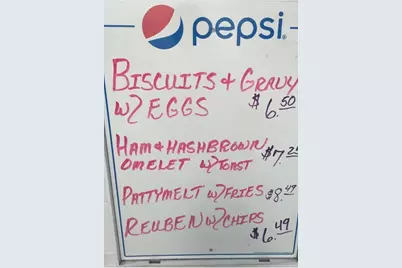 pepsi
BISCUITS & GRAVY
W/ EGGS $6.50
HAM & HASHBROWN
OMELET W/ TOAST $7.25
PATTYMELT W/ FRIES $8.49
REUBEN W/ CHIPS
$6.49